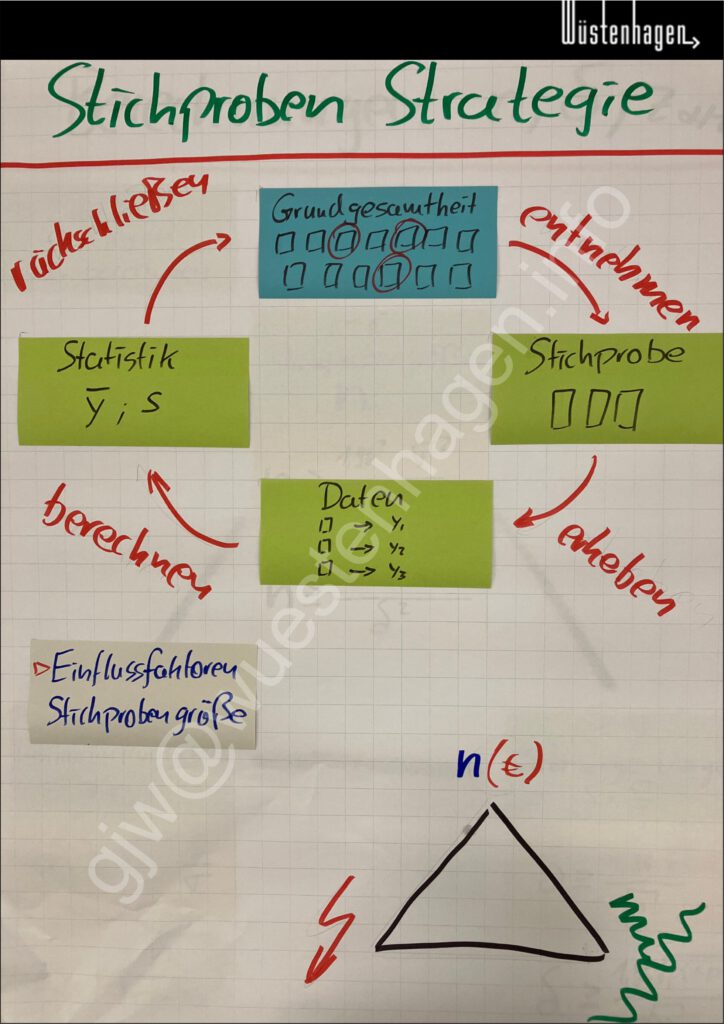 Wüstenhagen
Stichproben Strategie
rückschließen
Grundgesamtheit
entnehmen
Statistik
ȳ ; s
Stichprobe
Daten
→ y₁
→ y₂
→ y₃
berechnen
erheben
Einflussfaktoren
Stichprobengröße
n(€)
gjw@wuestenhagen.info